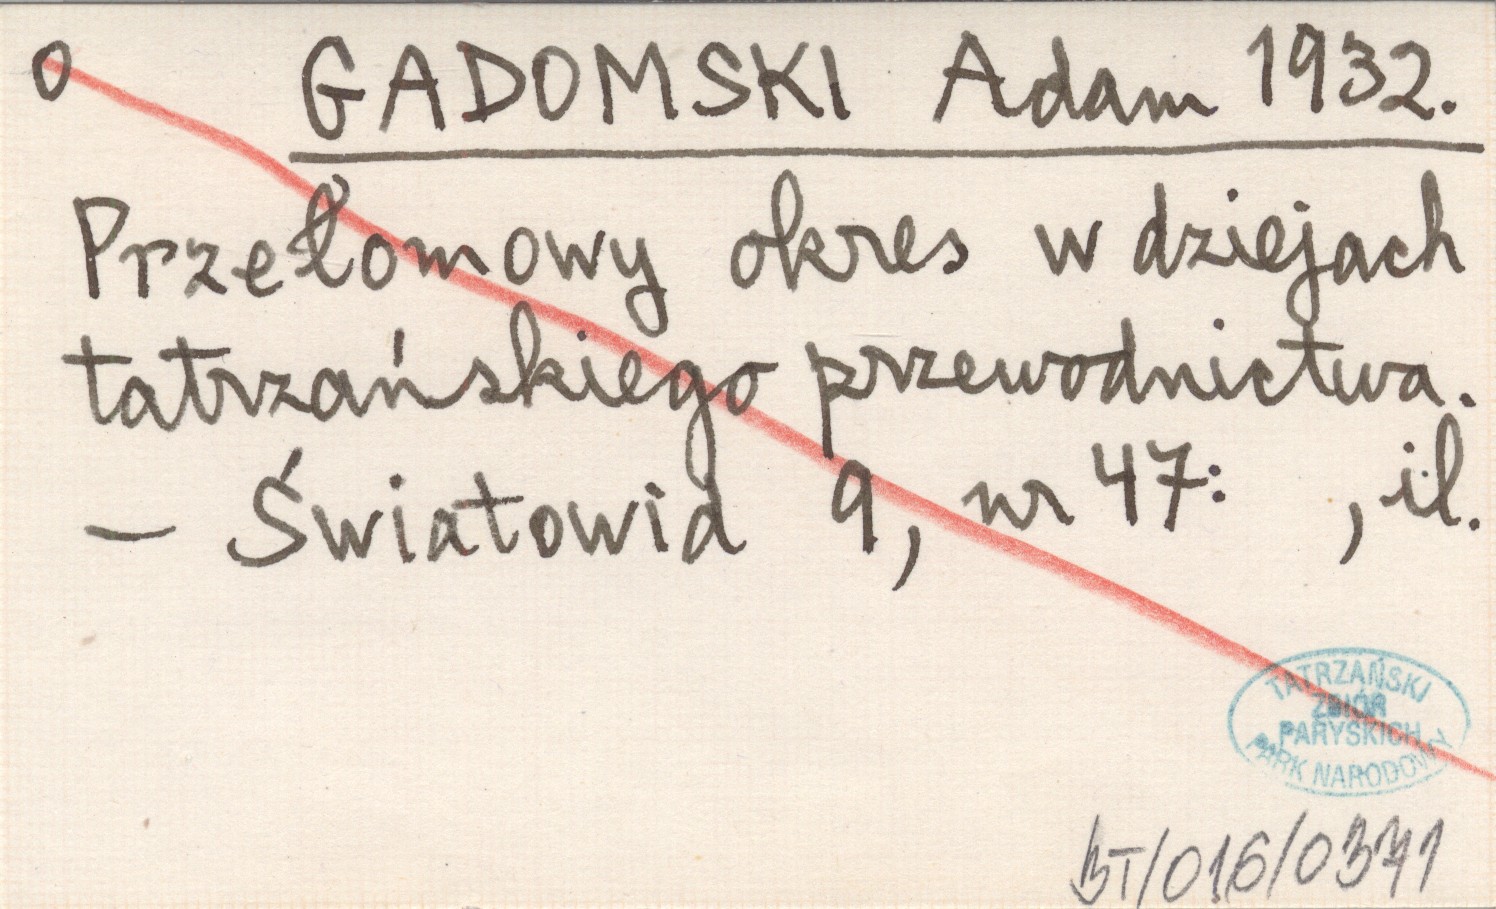 o GADOMSKI Adam 1932.
Przełomowy okres w dziejach
tatrzańskiego przewodnictwa.
– Światowid 9, nr 47: , il.
TATRZAŃSKI
ZBIÓR
PARYSKICH
PARK NARODOWY
BT/016/0371